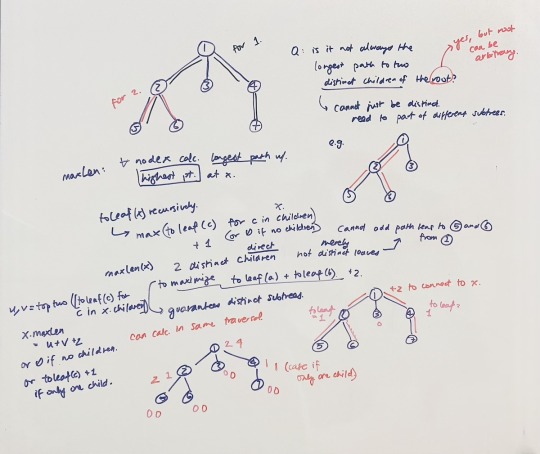 for 1.
1
2
3
4
5
6
7
for 2.
Q: is it not always the
longest path to two
distinct children of the root?
yes, but root
can be
arbitrary.
↳ cannot just be distinct.
need to part of different subtrees.
e.g.
1
2
3
5
6
maxLen: ∀ node x calc. longest path w/.
highest pt. at x.
toleaf(x) recursively.
x.
↳ max(toleaf(c) for c in children)
+ 1 (or 0 if no children)
direct
maxlen(x) 2 distinct children
merely
not distinct leaves
cannot add path lens to 5 and 6
from 1
to maximize toleaf(a) + toleaf(b) +2.
↳ guarantees distinct subtrees.
u,v = top two ([toleaf(c) for
c in x.children])
x.maxlen
= u+v+2
or 0 if no children.
or toleaf(c) +1
if only one child.
can calc in same traversal
1 2 4
2 1 2
3 0 0
4 1 1 (case if
only one child)
5 6 7
0 0 0 0 0 0
1 +2 to connect to x.
toleaf
= 1
2
3
0
4
toleaf=
1
5
6
7